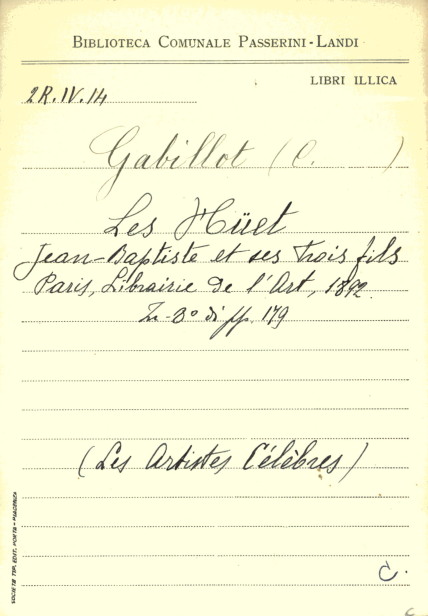 BIBLIOTECA COMUNALE PASSERINI-LANDI
LIBRI ILLICA
2R.IV.14
Gabillot (C. )
Les Hüet
Jean-Baptiste et ses trois fils
Paris, Librairie de l'Art, 1892.
In-8° di pp. 179
(Les Artistes Célèbres)
SOCIETÀ TIP. EDIT. PORTA - PIACENZA
C.